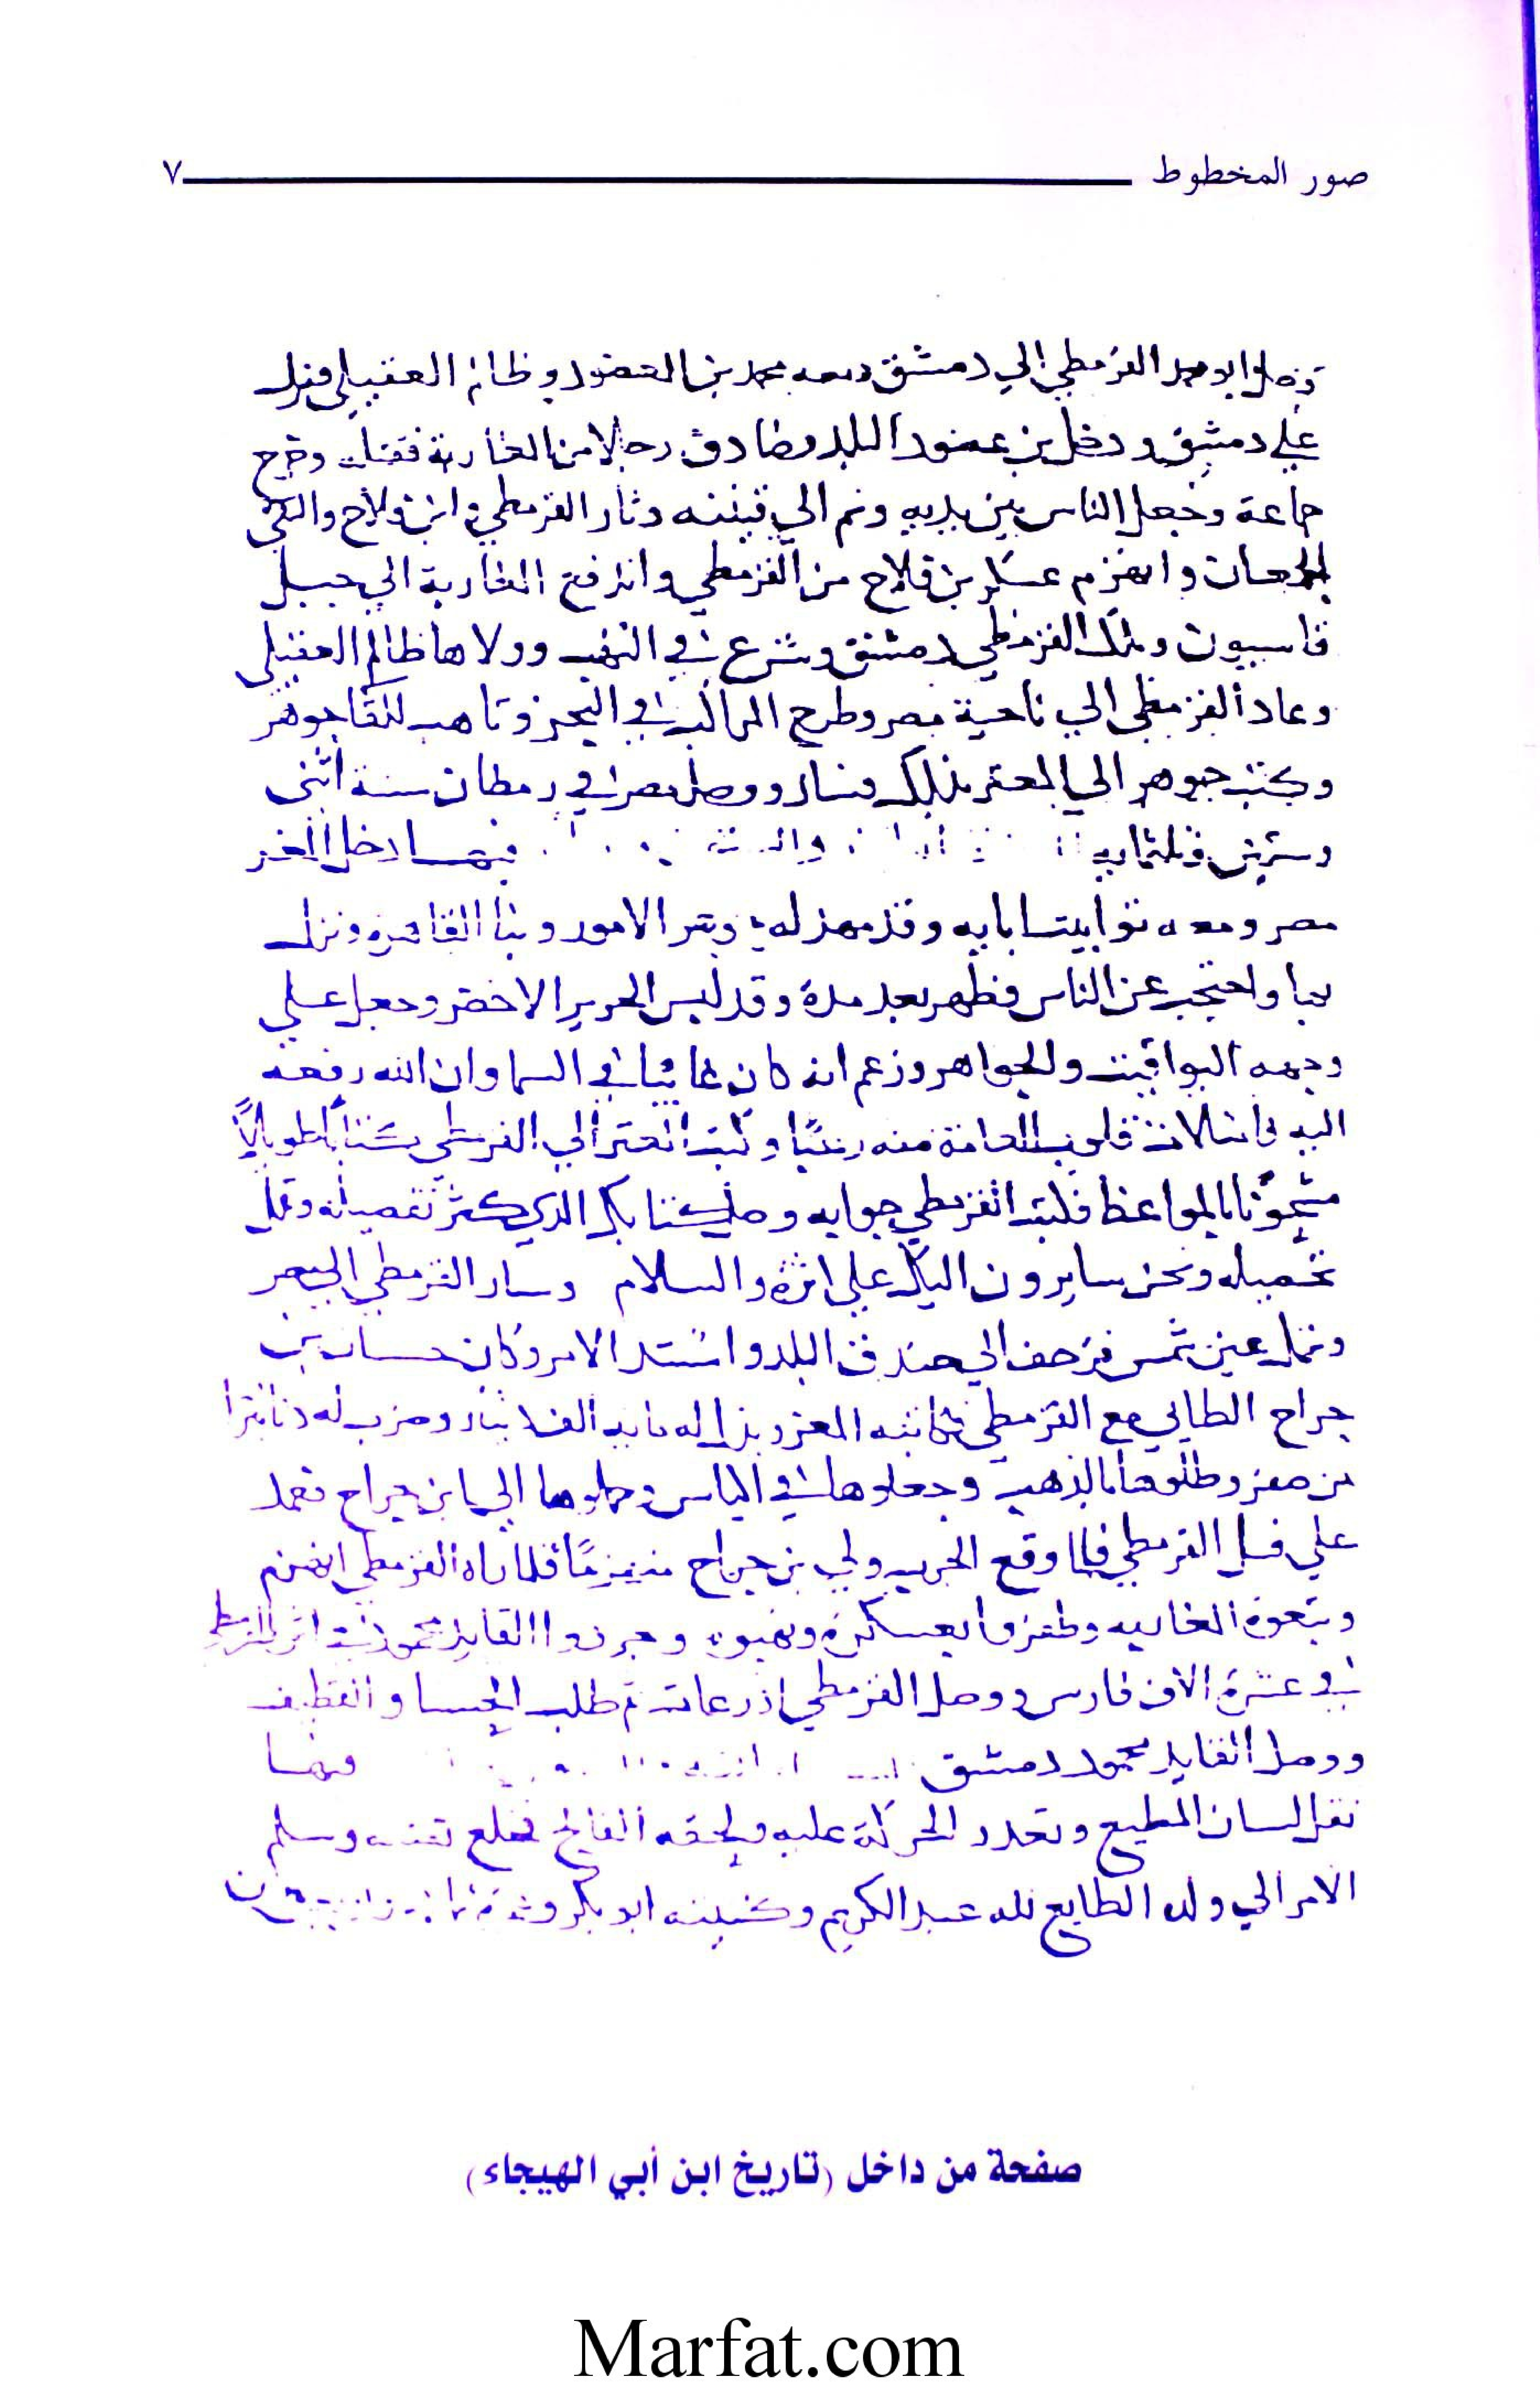 صور المخطوط ٧
وصل ابو محمد القرمطي الي دمشق ومعه محمد بن العصور وظالم العقيلي فنزل
علي دمشق ودخل بن عصور البلد وصادف رجالا من المغاربة فقتل وجرح
جماعة وجعل الناس بين يديه وثار القرمطي وابن فلاح والتقي
الجمعان وانهزم عسكر بن فلاح من القرمطي واندفع المغاربة الي جبل
قاسيون وملك القرمطي دمشق وشرع في النهب وولاها ظالم العقيلي
وعاد القرمطي الي ناحية مصر وطرح المراكب في البحر وتاهب للقا جوهر
وكتب جوهر الي المعز بذلك فسار ووصل مصر في رمضان سنة اثني
وستين وثلثمايه فيها دخل المعز
مصر ومعه توابيت ابايه وقد مهد له الامور وبنا القاهره ونزل
بها واحتجب عن الناس فظهر بعد مدة وقد لبس الحرير الاخضر وجعل علي
وجهه اليواقيت والجواهر وزعم انه كان غايبا في السما وان الله رفعه
اليه فامتلات قلوب العامة منه رعبا وكتب المعز الي القرمطي كتابا طويلاً
مشحونا بالمواعظ فكتب القرمطي جوابه وصل كتابك الذي كثر تفصيله وقل
تحصيله ونحن سايرون اليك علي اثره والسلام وسار القرمطي الي مصر
ونزل عين شمس فزحف الي خندق البلد واشتد الامر وكان حسان بن
جراح الطايي مع القرمطي فكاتبه المعز وبذل له مايه الف دينار وضرب له دنانيرا
من صفر وطلوها بالذهب وجعلوها في اكياس وحملوها الي ابن جراح فعمل
علي فسل القرمطي فلما وقع الحرب ولي بن جراح منهزمًا فلما راه القرمطي انهزم
وتبعوه المغاربه وظفروا بعسكره ونهبوه وجردوا القايد محمود اثر القرمطي
في عشرة الاف فارس ووصل القرمطي اذرعات ثم طلب الحسا والقطيف
ووصل القايد محمود دمشق وفيها
ثقل لسان المطيع وتعذر الحركة عليه ولحقه الفالج فخلع نفسه وسلم
الامر الي ولده الطايع لله عبد الكريم وكنيته ابو بكر
صفحة من داخل (تاريخ ابن أبي الهيجاء)
Marfat.com